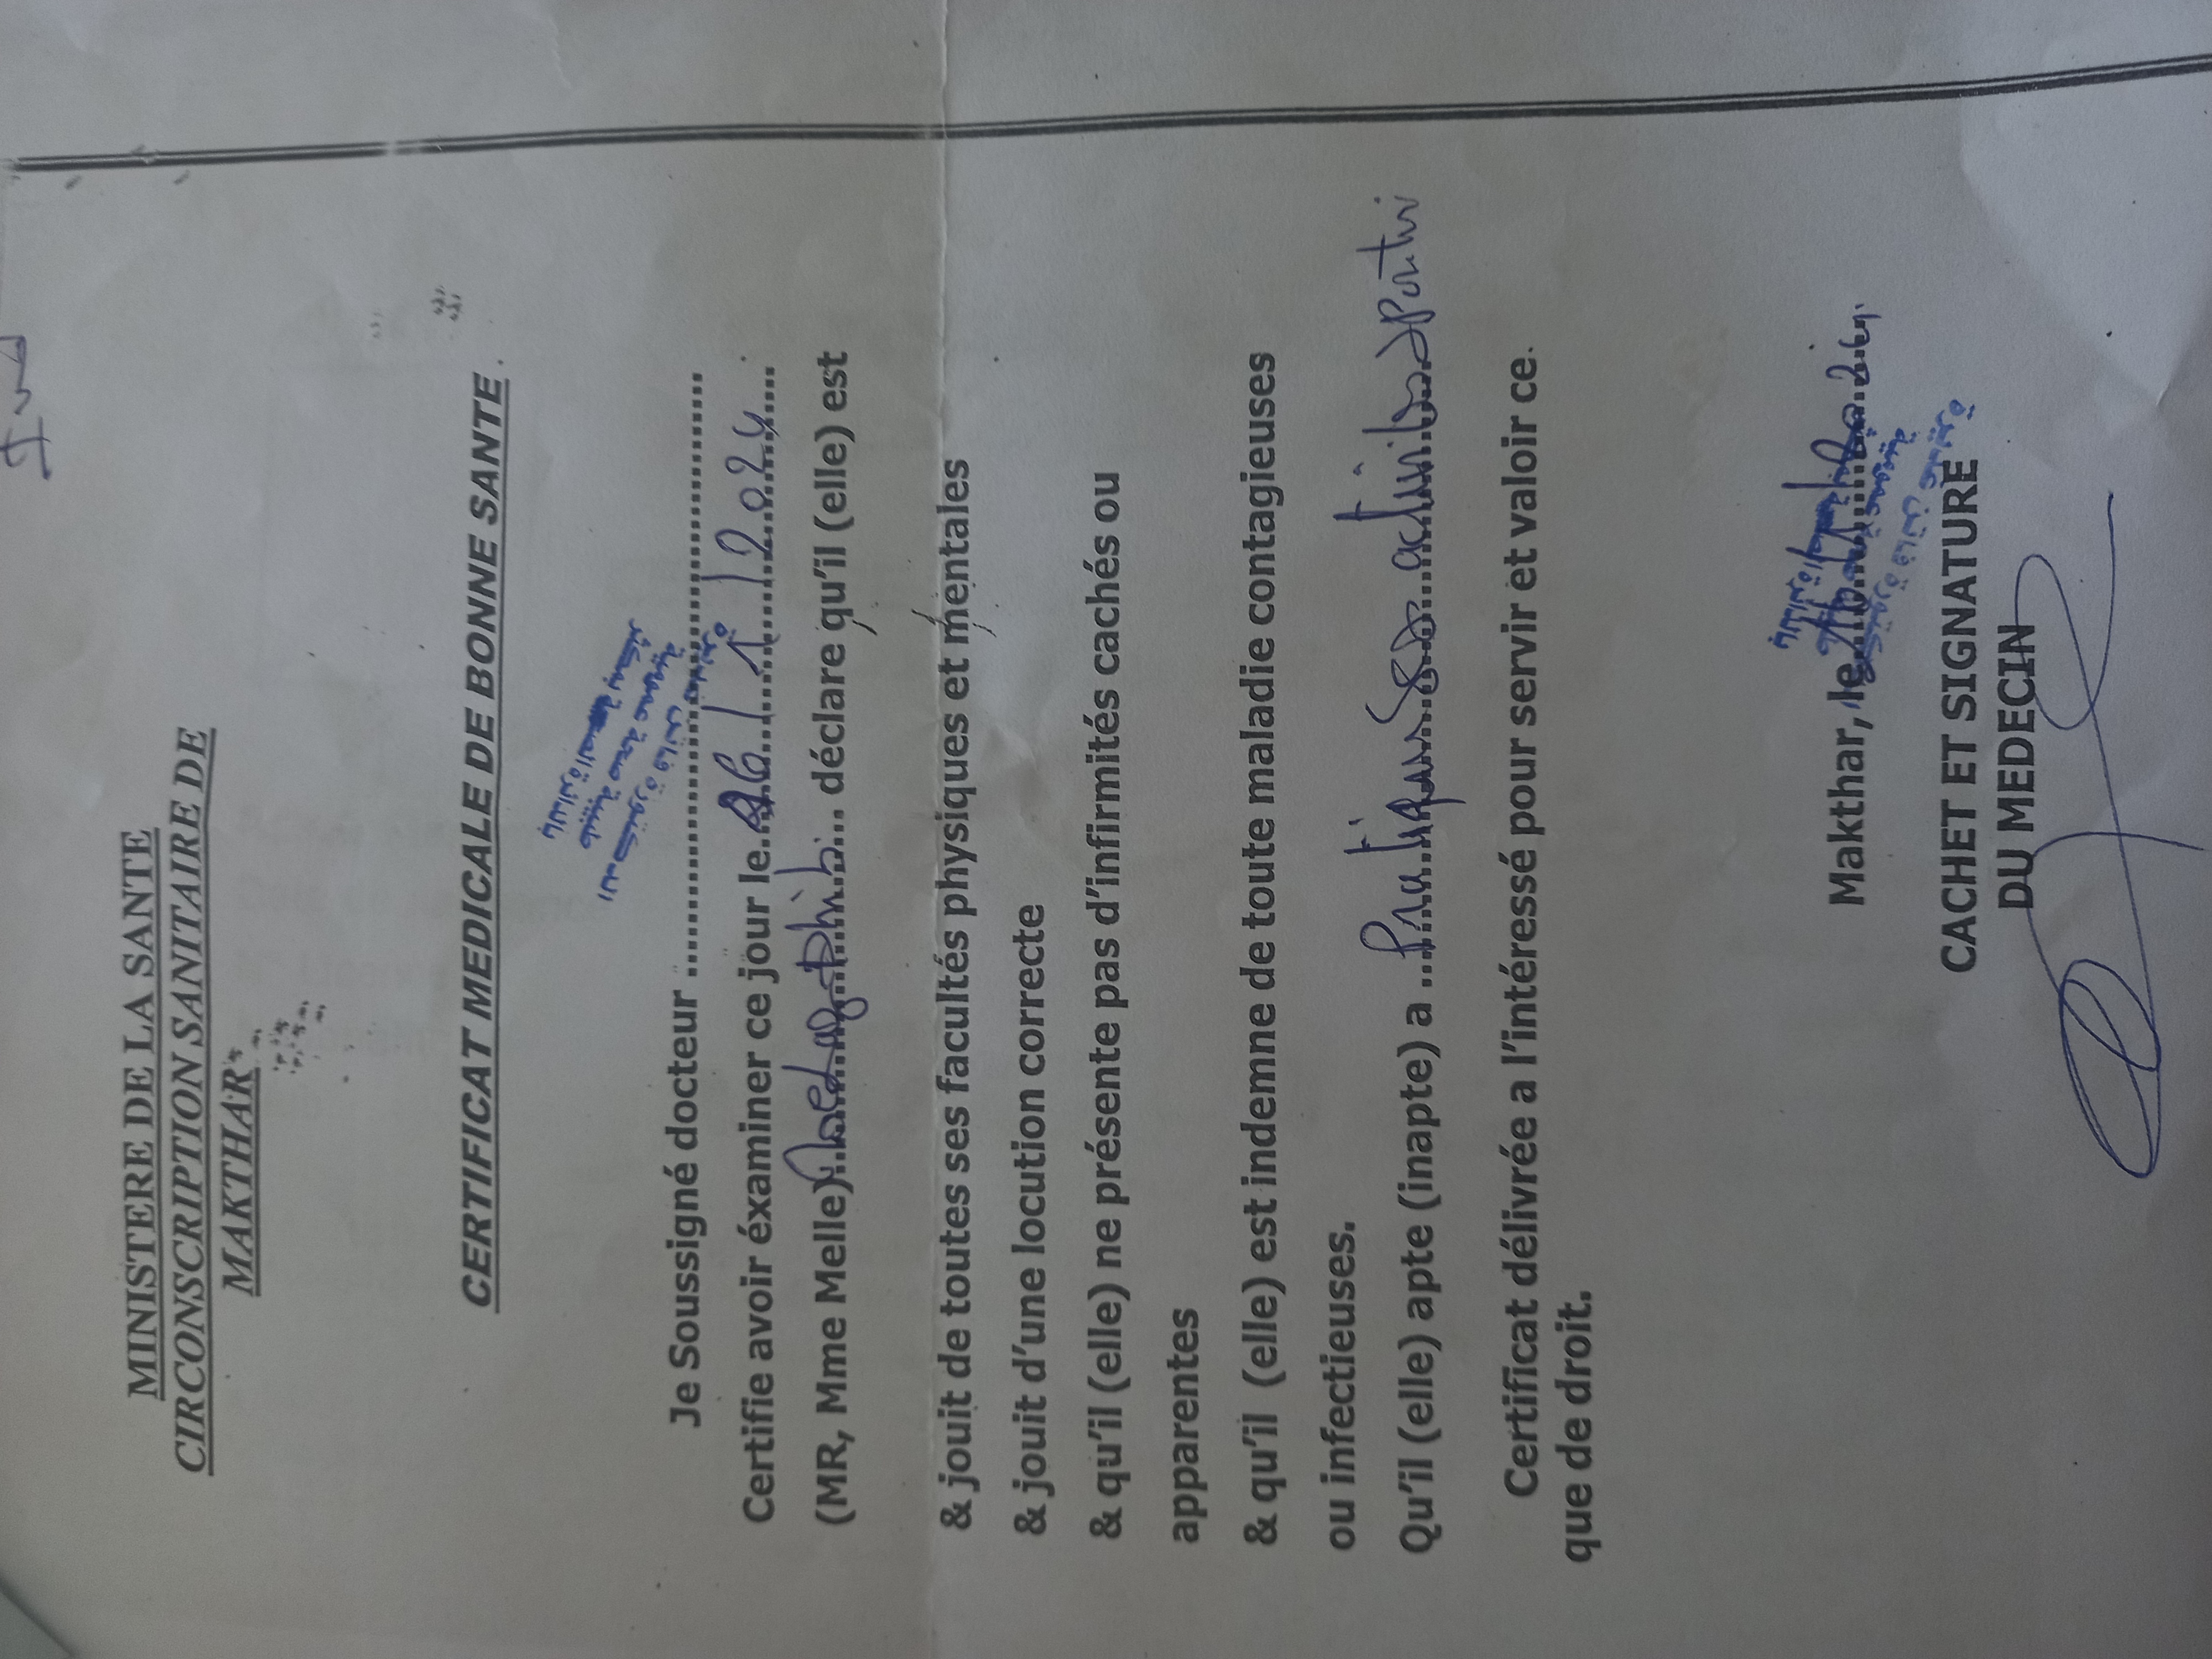 MINISTERE DE LA SANTE
CIRCONSCRIPTION SANITAIRE DE
MAKTHAR
CERTIFICAT MEDICALE DE BONNE SANTE
Je Soussigné docteur ..........
Certifie avoir éxaminer ce jour le 16/1/2024
(MR, Mme Melle) ......... déclare qu'il (elle) est
& jouit de toutes ses facultés physiques et mentales
& jouit d'une locution correcte
& qu'il (elle) ne présente pas d'infirmités cachés ou
apparentes
& qu'il (elle) est indemne de toute maladie contagieuses
ou infectieuses.
Qu'il (elle) apte (inapte) a ... Pratiquer des activités sportives
Certificat délivrée a l'intéressé pour servir et valoir ce
que de droit.
Makthar, le
CACHET ET SIGNATURE
DU MEDECIN